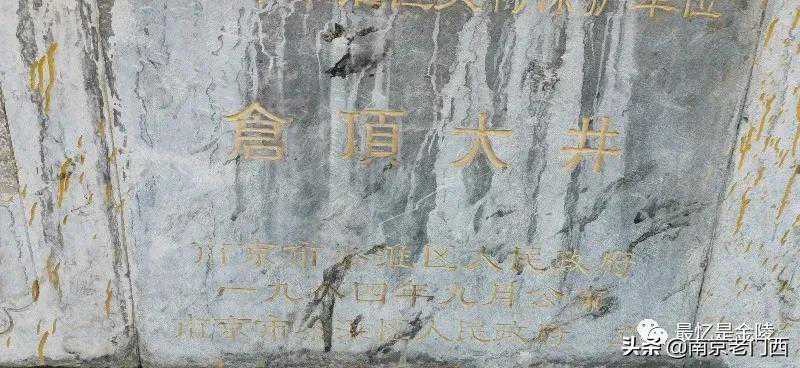 区文物保护单位
倉頂大井
南京市秦淮区人民政府
一九八四年九月公布
南京市秦淮区人民政府 立
最忆是金陵
头条 @南京老门西